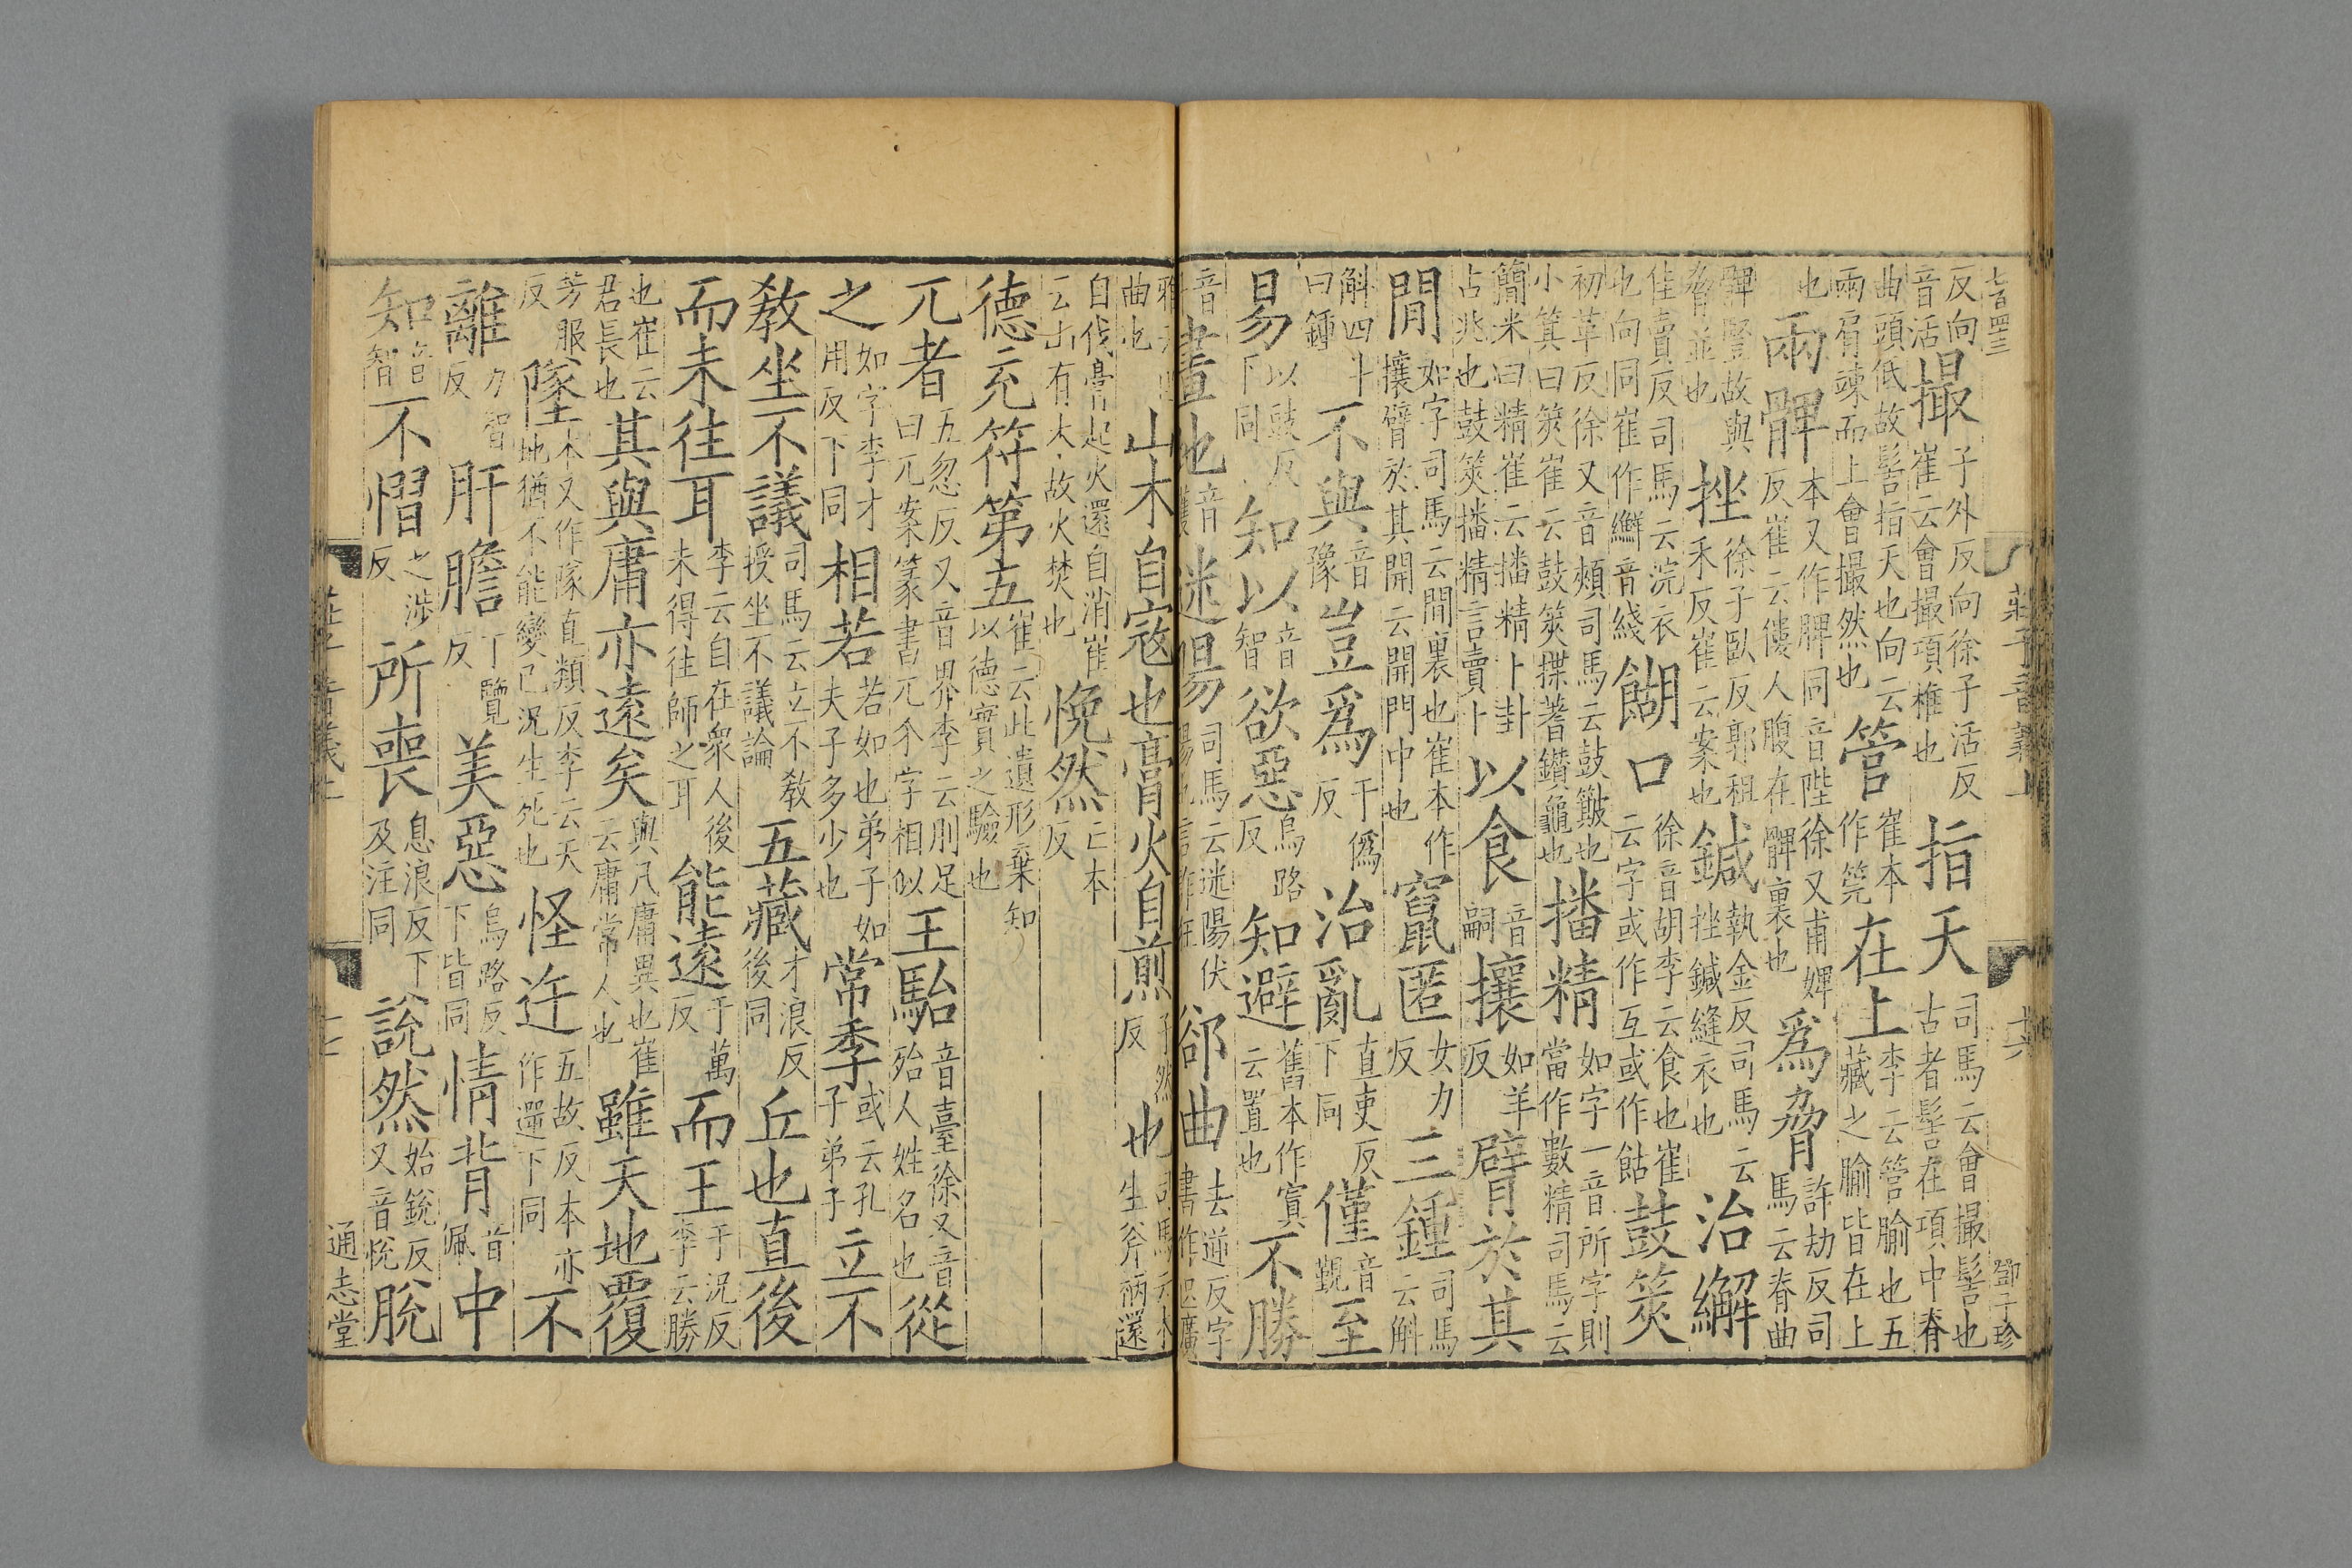 七百四三 莊子音義上 十六 鄧子珍
反向音活撮子外反向徐子活反崔云會撮項椎也指天司馬云會撮髻也古者髻在項中脊
曲頭低故髻指天也向云兩肩竦而上會撮然也管崔本作筦在上李云管腧也五藏之腧皆在上
也兩髀本又作脾同音陛徐又甫婢反崔云僂人腹在髀裏也爲脅許劫反司馬云脊曲
髀豎故與脅並也挫徐子臥反郭租禾反崔云案也鍼執金反司馬云挫鍼縫衣也治繲
佳賣反司馬云浣衣也向同崔作音綫餬口徐音胡李云食也崔云字或作互或作䬢鼓筴
初革反徐又音頰司馬云鼓簸也小箕曰筴崔云鼓筴揲蓍鑽龜也播精如字一音所字則當作數精司馬云
簡米曰精崔云播精卜卦占兆也鼓筴播精言賣卜以食音嗣攘如羊反臂於其
閒如字司馬云閒裏也崔本作攘臂於其開云開門中也竄匿女力反三鍾司馬云斛
斛四斗曰鍾不與音豫豈爲于僞反治亂直吏反下同僅音覲至
易以豉反下同知以音智欲惡烏路反知避舊本作寘云置也不勝
音畫地音獲迷陽司馬云迷陽伏陽也言詐狂郤曲去逆反字書作廣
雅云曲也山木自寇也膏火自煎子然反也司馬云木生斧柄還
自伐膏起火還自消崔云山有木故火焚也悗然亡本反
德充符第五崔云此遺形棄知以德實之驗也
兀者五忽反又音界李云刖足曰兀案篆書兀介字相似王駘音臺徐又音殆人姓名也從
之如字李才用反下同相若若如也弟子如夫子多少也常季或云孔子弟子立不
敎坐不議司馬云立不敎授坐不議論五藏才浪反後同丘也直後
而未往耳李云自在衆人後未得往師之耳能遠于萬反而王于況反李云勝
也崔云君長也其與庸亦遠矣與凡庸異也崔云庸常人也雖天地覆
芳服反墜本又作隊直類反李云天地猶不能變已況生死也怪迕五故反本亦作遻下同不
離力智反肝膽丁覽反美惡烏路反下皆同情背音佩中
知音智不慴之涉反所喪息浪反下及注同說然始銳反又音悅脫
莊子音義上 十七 通志堂